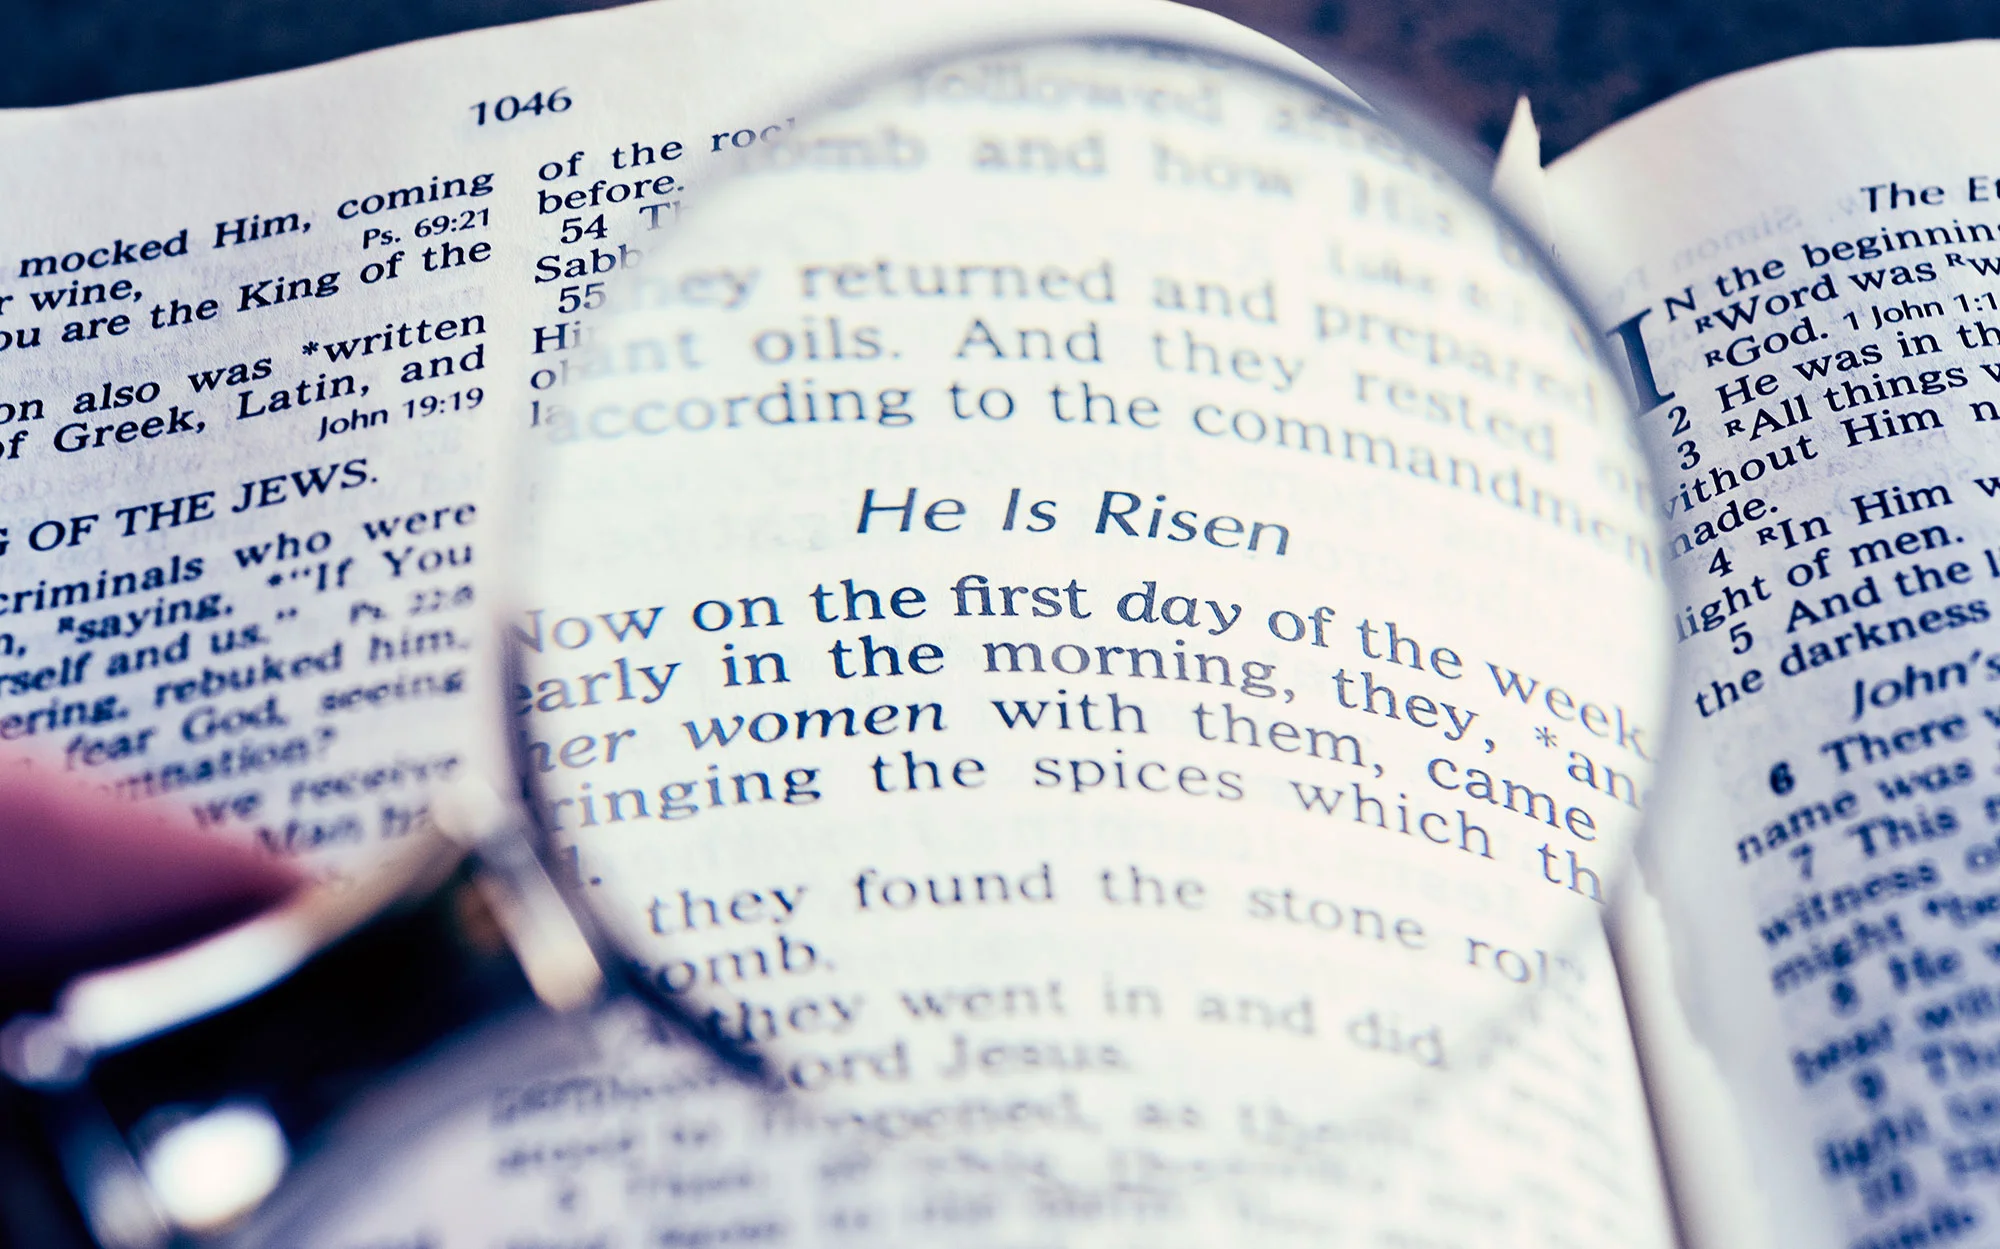 1046
mocked Him, coming
Ps. 69:21
wine,
you are the King of the
on also was *written
of Greek, Latin, and
John 19:19
OF THE JEWS.
criminals who were
ᴿsaying, *“If You
rself and us.” Ps. 22:8
ering, rebuked him,
fear God, seeing
mnation?
we receive
Man
of the roc
before.
54 T
Sabb
55
Hi
followed after
omb and how His
Luke
hey returned and prepared
ant oils. And they rested
according to the commandmen
He Is Risen
Now on the first day of the week
early in the morning, they, *an
her women with them, came
ringing the spices which th
d.
they found the stone rol
omb.
they went in and did
Lord Jesus.
happened, as
The Et
IN the beginnin
ᴿWord was ᴿw
ᴿGod. 1 John 1:1
2 He was in th
3 ᴿAll things w
without Him n
made.
4 ᴿIn Him w
light of men.
5 And the l
the darkness
John's
6 There
name was
7 This
witness of
might ᴿbe
8 He w
bear
9 Tha
light
10